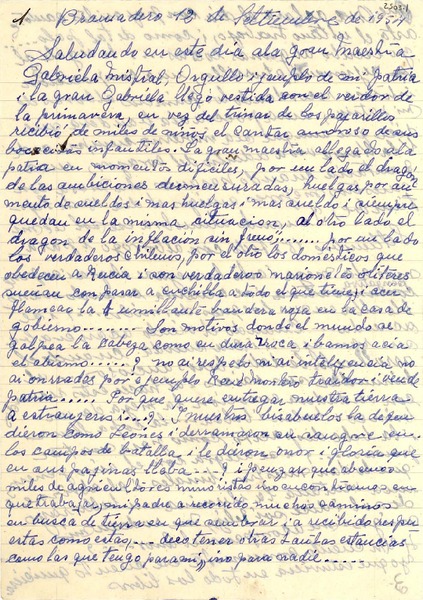 1
Bramadero 12 de Settiembre de 1954
Saludando en este día a la gran Maestra
Gabriela Mistral. Orgullo i ejemplo de mi patria
i la gran Gabriela llegó vestida con el verdor de
la primavera, en vez del trinar de los pajarillos
recibió de miles de niños el cantar amoroso de sus
bocesitas infantiles. La gran maestra a llegado a la
patria en momentos difíciles, por un lado el dragon
de las ambiciones desmensuradas, huelgas por au
mento de sueldos i mas huelgas i mas sueldo i siempre
quedan en la misma situacion, al otro lado el
dragon de la inflación sin freno,....... por un lado
los verdaderos chilenos, por el otro los domesticos que
obedecen a Rucia i son verdaderos marioneles o titeres
sueñan con pasar a cuchilla a todo el que tiene i acer
flamear la umillante bandera roja en la casa de
gobierno........ Son motivos donde el mundo se
golpea la cabeza como en dura roca i bamos acia
el abismo.....? no ai respeto ni ai inteligencia no
ai onrrados por ejemplo traidor i vende
patria...... Por que quere entregar nuestra tierra
a estrangeros....? I nuestros bisabuelos la defen
dieron como Leones i derramaron su sangre en
los campos de batalla i le dieron onor i gloria que
en sus paginas llata....? i pensar que abemos
miles de agricultores minoristas i no encontramos en
que trabajar, mi padre a recorrido muchos caminos
en busca de tierra en que sembrar i a recibido respu
estas como estas,... deco tener otras tantas estancias
como las que tengo para mi, i no para nadie.......